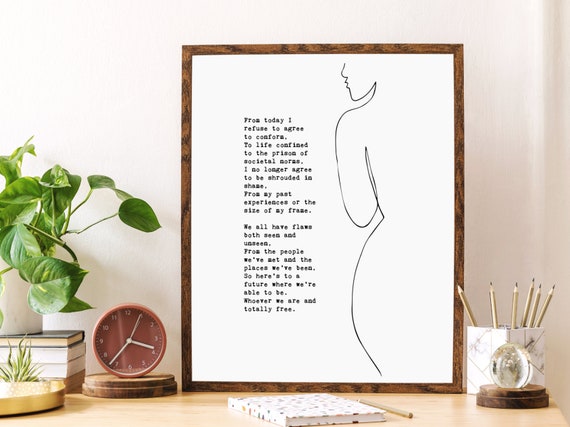 From today I
refuse to agree
to conform.
To life confined
to the prison of
societal norms.
I no longer agree
to be shrouded in
shame.
From my past
experiences or the
size of my frame.
We all have flaws
both seen and
unseen.
From the people
we've met and the
places we've been.
So here's to a
future where we're
able to be.
Whoever we are and
totally free.